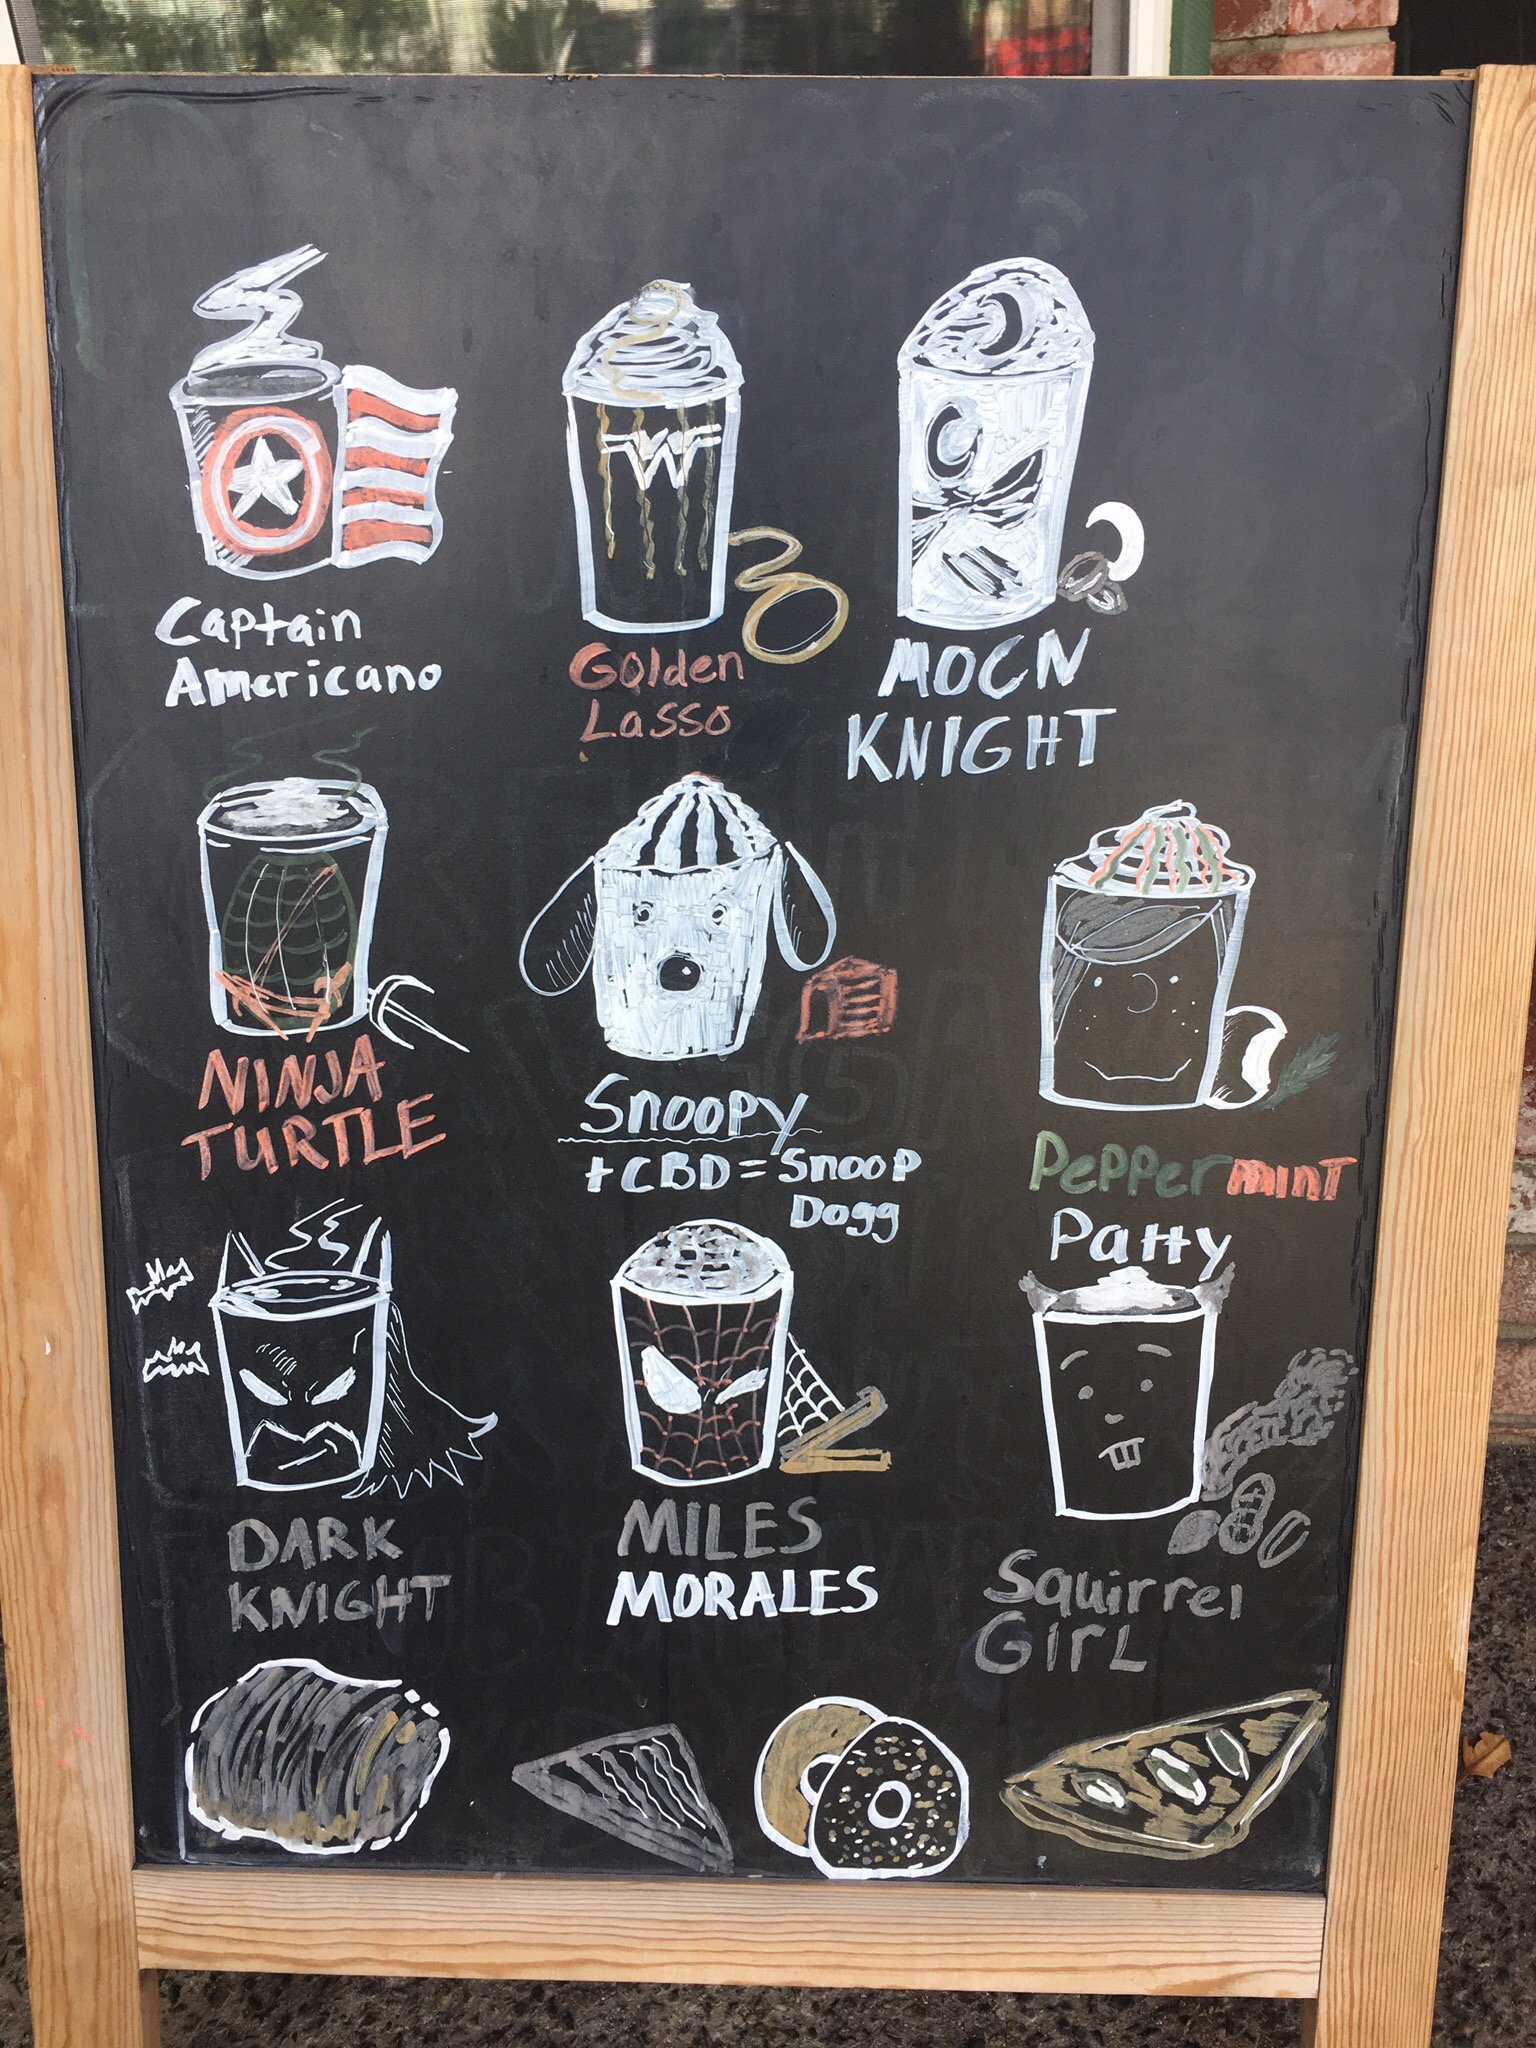 Captain
Americano
Golden
Lasso
MOON
KNIGHT
NINJA
TURTLE
Snoopy
+CBD=Snoop
Dogg
Peppermint
Patty
DARK
KNIGHT
MILES
MORALES
Squirrel
GIRL